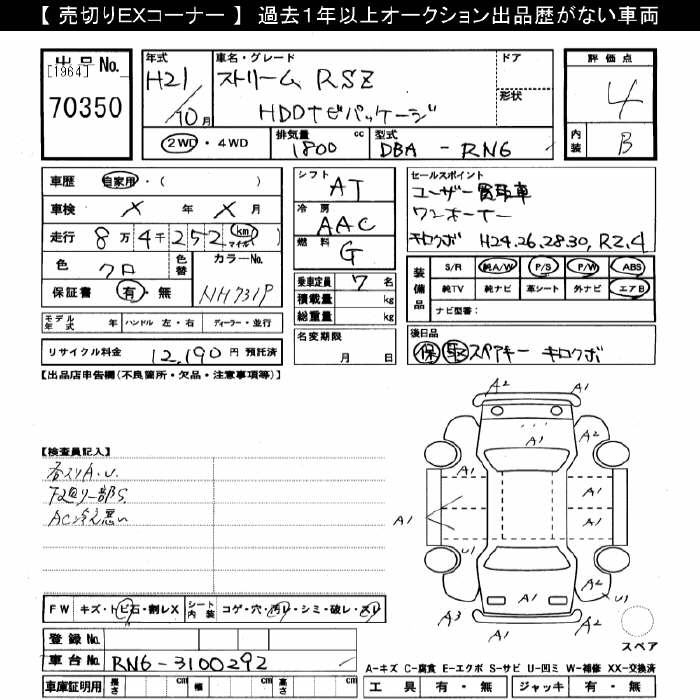 【 売切りEXコーナー 】 過去1年以上オークション出品歴がない車両
出品 No.
[1964]
70350
年式
H21/10月
車名・グレード
ストリーム RSZ
HDDナビパッケージ
ドア
形状
評価点
4
内装
B
2WD・4WD
排気量 cc
1800
型式
DBA - RN6
車歴 自家用・( )
車検 × 年 × 月
走行 8万4千252 (km マイル)
色 クロ
色替
カラーNo.
NH731P
保証書 有・無
モデル年式 年 ハンドル 左・右 ディーラー・並行
リサイクル料金 12,190 円 預託済
シフト AT
冷房 AAC
燃料 G
乗車定員 7 名
積載量 kg
総重量 kg
名変期限
月 日
セールスポイント
ユーザー買取車
ワンオーナー
キロクボ H24.26.28.30, R2.4
装備品
S/R 純A/W P/S P/W ABS
純TV 純ナビ 革シート 外ナビ エアB
ナビ型番:
後日品
保 取 スペアキー キロクボ
【出品店申告欄(不良箇所・欠品・注意事項等)】
【検査員記入】
各スリA.U.
下廻り一部S.
AC冷え悪い
FW キズ・トビ石・割レX シート内装 コゲ・穴・汚レ・シミ・破レ・スレ
登録 No.
車台 No. RN6-3100292
車庫証明用 長さ cm 幅 cm 高さ cm
A2
A1
A1
A2
A1
A1
A1
A1
A1
U1
A1
A2
A3
A2
U1
スペア
A-キズ C-腐食 E-エクボ S-サビ U-凹ミ W-補修 XX-交換済
工具 有・無 ジャッキ 有・無